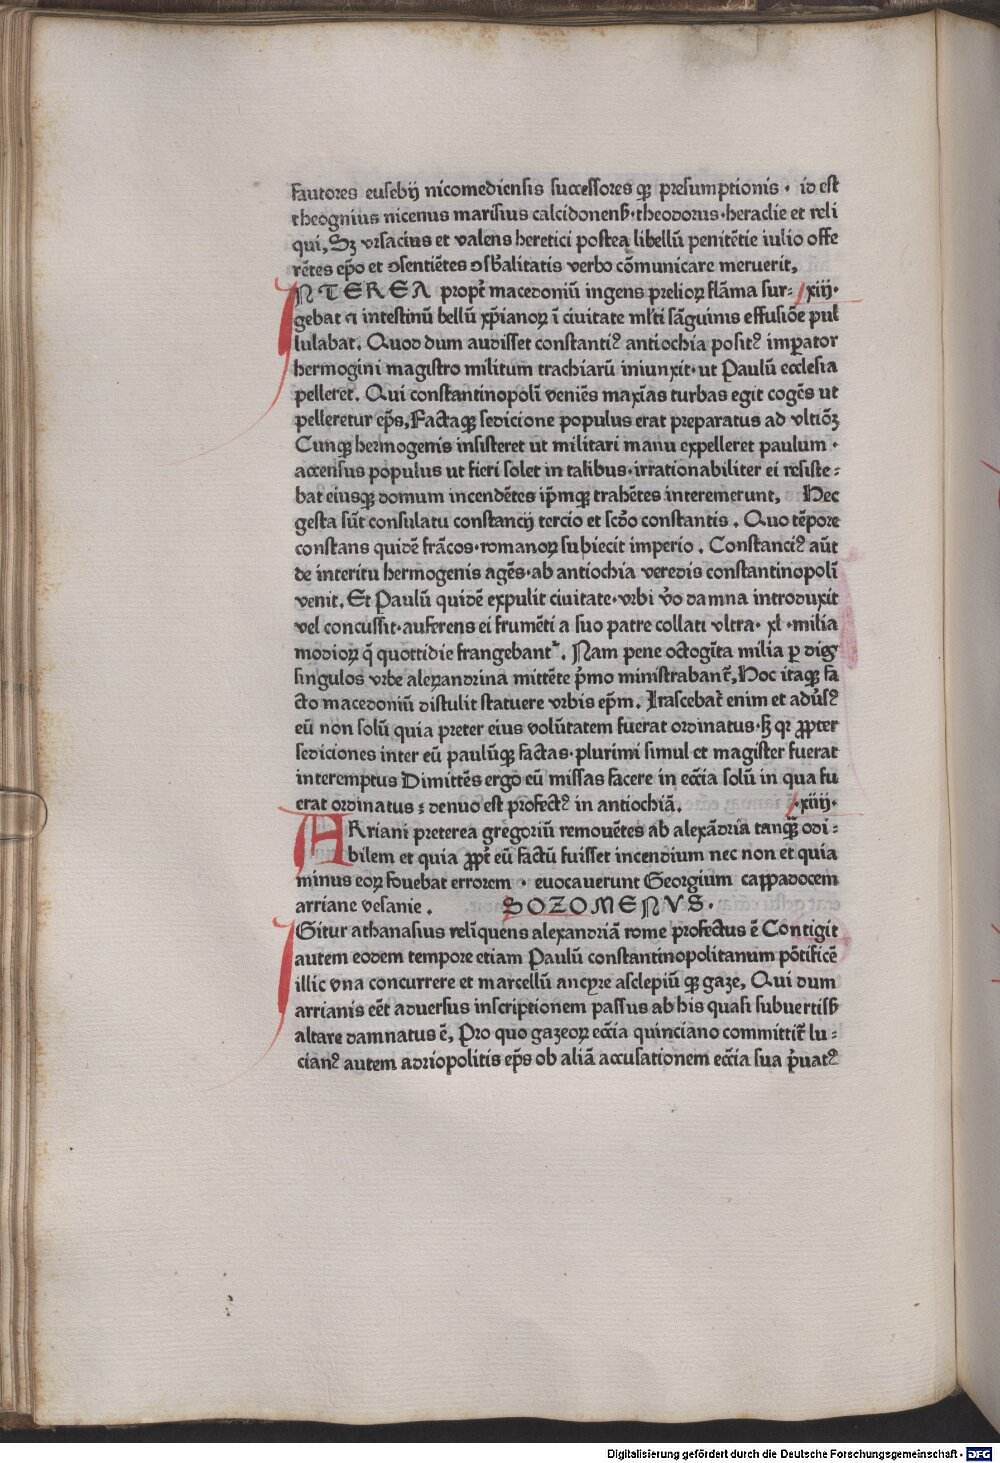 fautores eusebij nicomediensis successores qꝫ presumptionis · id est
theognius nicenus marisius calcidonenẜ·theodorus·heraclie et reli
qui, Sꝫ vrsacius et valens heretici postea libellū penitētie iulio offe
rētes ep̄o et ↄsentiētes ↄsb̄alitatis verbo cōmunicare meruerit,
INTEREA propt̄ macedoniū ingens prelioꝝ flāma sur⸗ xiij·
gebat ⁊ intestinū bellū xp̄ianoꝝ ī ciuitate ml̄ti sāguinis effusiōe pul
lulabat. Quod dum audisset constantiꝰ antiochia positꝰ imꝑator
hermogini magistro militum trachiarū iniunxit·ut Paulū ecclesia
pelleret. Qui constantinopolī veniēs maxīas turbas egit cogēs ut
pelleretur ep̄s, Factaqꝫ sedicione populus erat preparatus ad vltiōꝫ
Cunqꝫ hermogenis insisteret ut militari manu expelleret paulum ·
accensus populus ut fieri solet in talibus·irrationabiliter ei resiste⸗
bat eiusqꝫ domum incendētes ip̄mqꝫ trahētes interemerunt, Hec
gesta sūt consulatu constancij tercio et scd̄o constantis. Quo tēpore
constans quidē frācos·romanoꝝ subiecit imperio. Constanciꝰ aūt
de interitu hermogenis agēs·ab antiochia veredis constantinopolī
venit. Et Paulū quidē expulit ciuitate·vrbi v̄o damna introduxit
vel concussit·auferens ei frumēti a suo patre collati vltra· xl ·milia
modioꝝ q̄ quottidie frangebant᷑. Nam pene octogīta milia ꝑ dieꝫ
singulos vrbe alexandrina mittēte p̄mo ministrabant᷑, Hoc itaqꝫ fa
cto macedoniū distulit statuere vrbis ep̄m. Irascebat᷑ enim et adūsꝰ
eū non solū quia preter eius volūtatem fuerat ordinatus·sꝫ qꝛ ꝓpter
sediciones inter eū paulūqꝫ factas·plurimi simul et magister fuerat
interemptus Dimittēs ergo eū missas facere in ecc̄ia solū in qua fu
erat ordinatus : denuo est profectꝰ in antiochiā. ·xiiij·
ARriani preterea gregoriū remouētes ab alexādria tanqꝫ odi⸗
bilem et quia ꝓpt̄ eū factū fuisset incendium nec non et quia
minus eoꝝ fouebat errorem · euocauerunt Georgium cappadocem
arriane vesanie. SOZOMENVS·
IGitur athanasius relīquens alexandriā rome profectus ē Contigit
autem eodem tempore etiam Paulū constantinopolitanum pōtificē
illic vna concurrere et marcellū ancyre asclepiū qꝫ gaze, Qui dum
arrianis eēt aduersus inscriptionem passus ab his quasi subuertisẜ
altare damnatus ē, Pro quo gazeoꝝ ecc̄ia quinciano committit᷑ lu⸗
cianꝰ autem adriopolitis ep̄s ob aliā accusationem ecc̄ia sua p̄uatꝰ
Digitalisierung gefördert durch die Deutsche Forschungsgemeinschaft - DFG